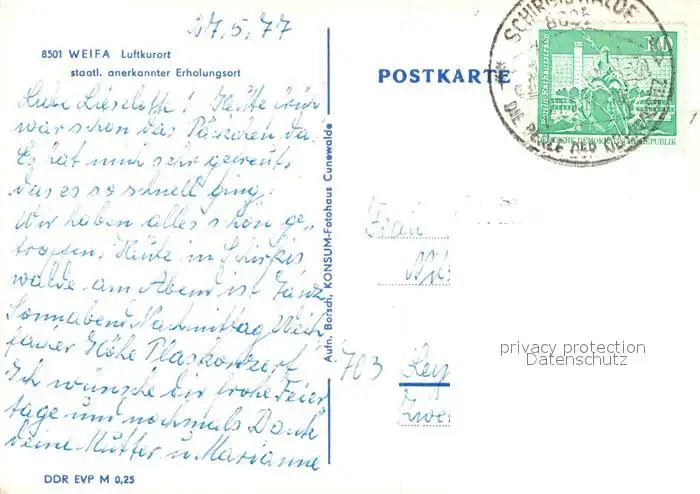 27.5.77
8501 WEIFA Luftkurort
staatl. anerkannter Erholungsort
Liebe Lieselotte! Heute früh
war schon das Päckchen da.
Es hat mich sehr gefreut,
das es so schnell ging.
Wir haben alles schon ge-
troffen. Heute in Schirgis
walde am Abend ist Tanz
Sonnabend Nachmittag Weih
faier Höhe Plaskonzert
Ich wünsche dir frohe Feier
tage und nochmals Dank
deine Mutter u. Marianne
DDR EVP M 0,25
Aufn. Borsch, KONSUM-Fotohaus Cunewalde
POSTKARTE
SCHIRGISWALDE
DIE PERLE DER
10
Berlin-Rathausstraße
DEUTSCHE DEMOKRATISCHE REPUBLIK
Frau
703
privacy protection
Datenschutz